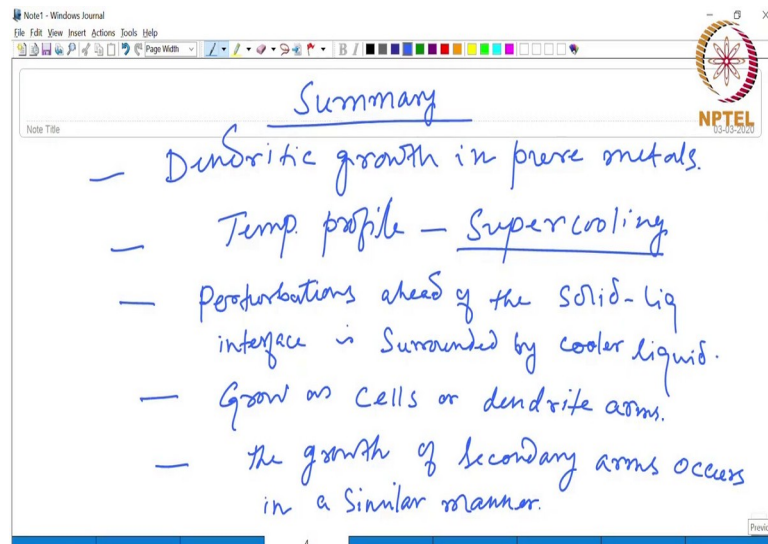 Note1 - Windows Journal
File Edit View Insert Actions Tools Help
Page Width
B I
NPTEL
Note Title
03-03-2020
Summary
— Dendritic growth in pure metals.
— Temp. profile — Supercooling
— Perturbations ahead of the solid-liq
interface is surrounded by cooler liquid.
— Grow as cells or dendrite arms.
— The growth of secondary arms occurs
in a similar manner.
Previo